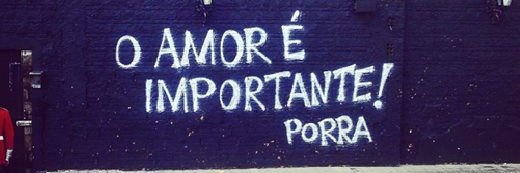 O AMOR É
IMPORTANTE!
PORRA